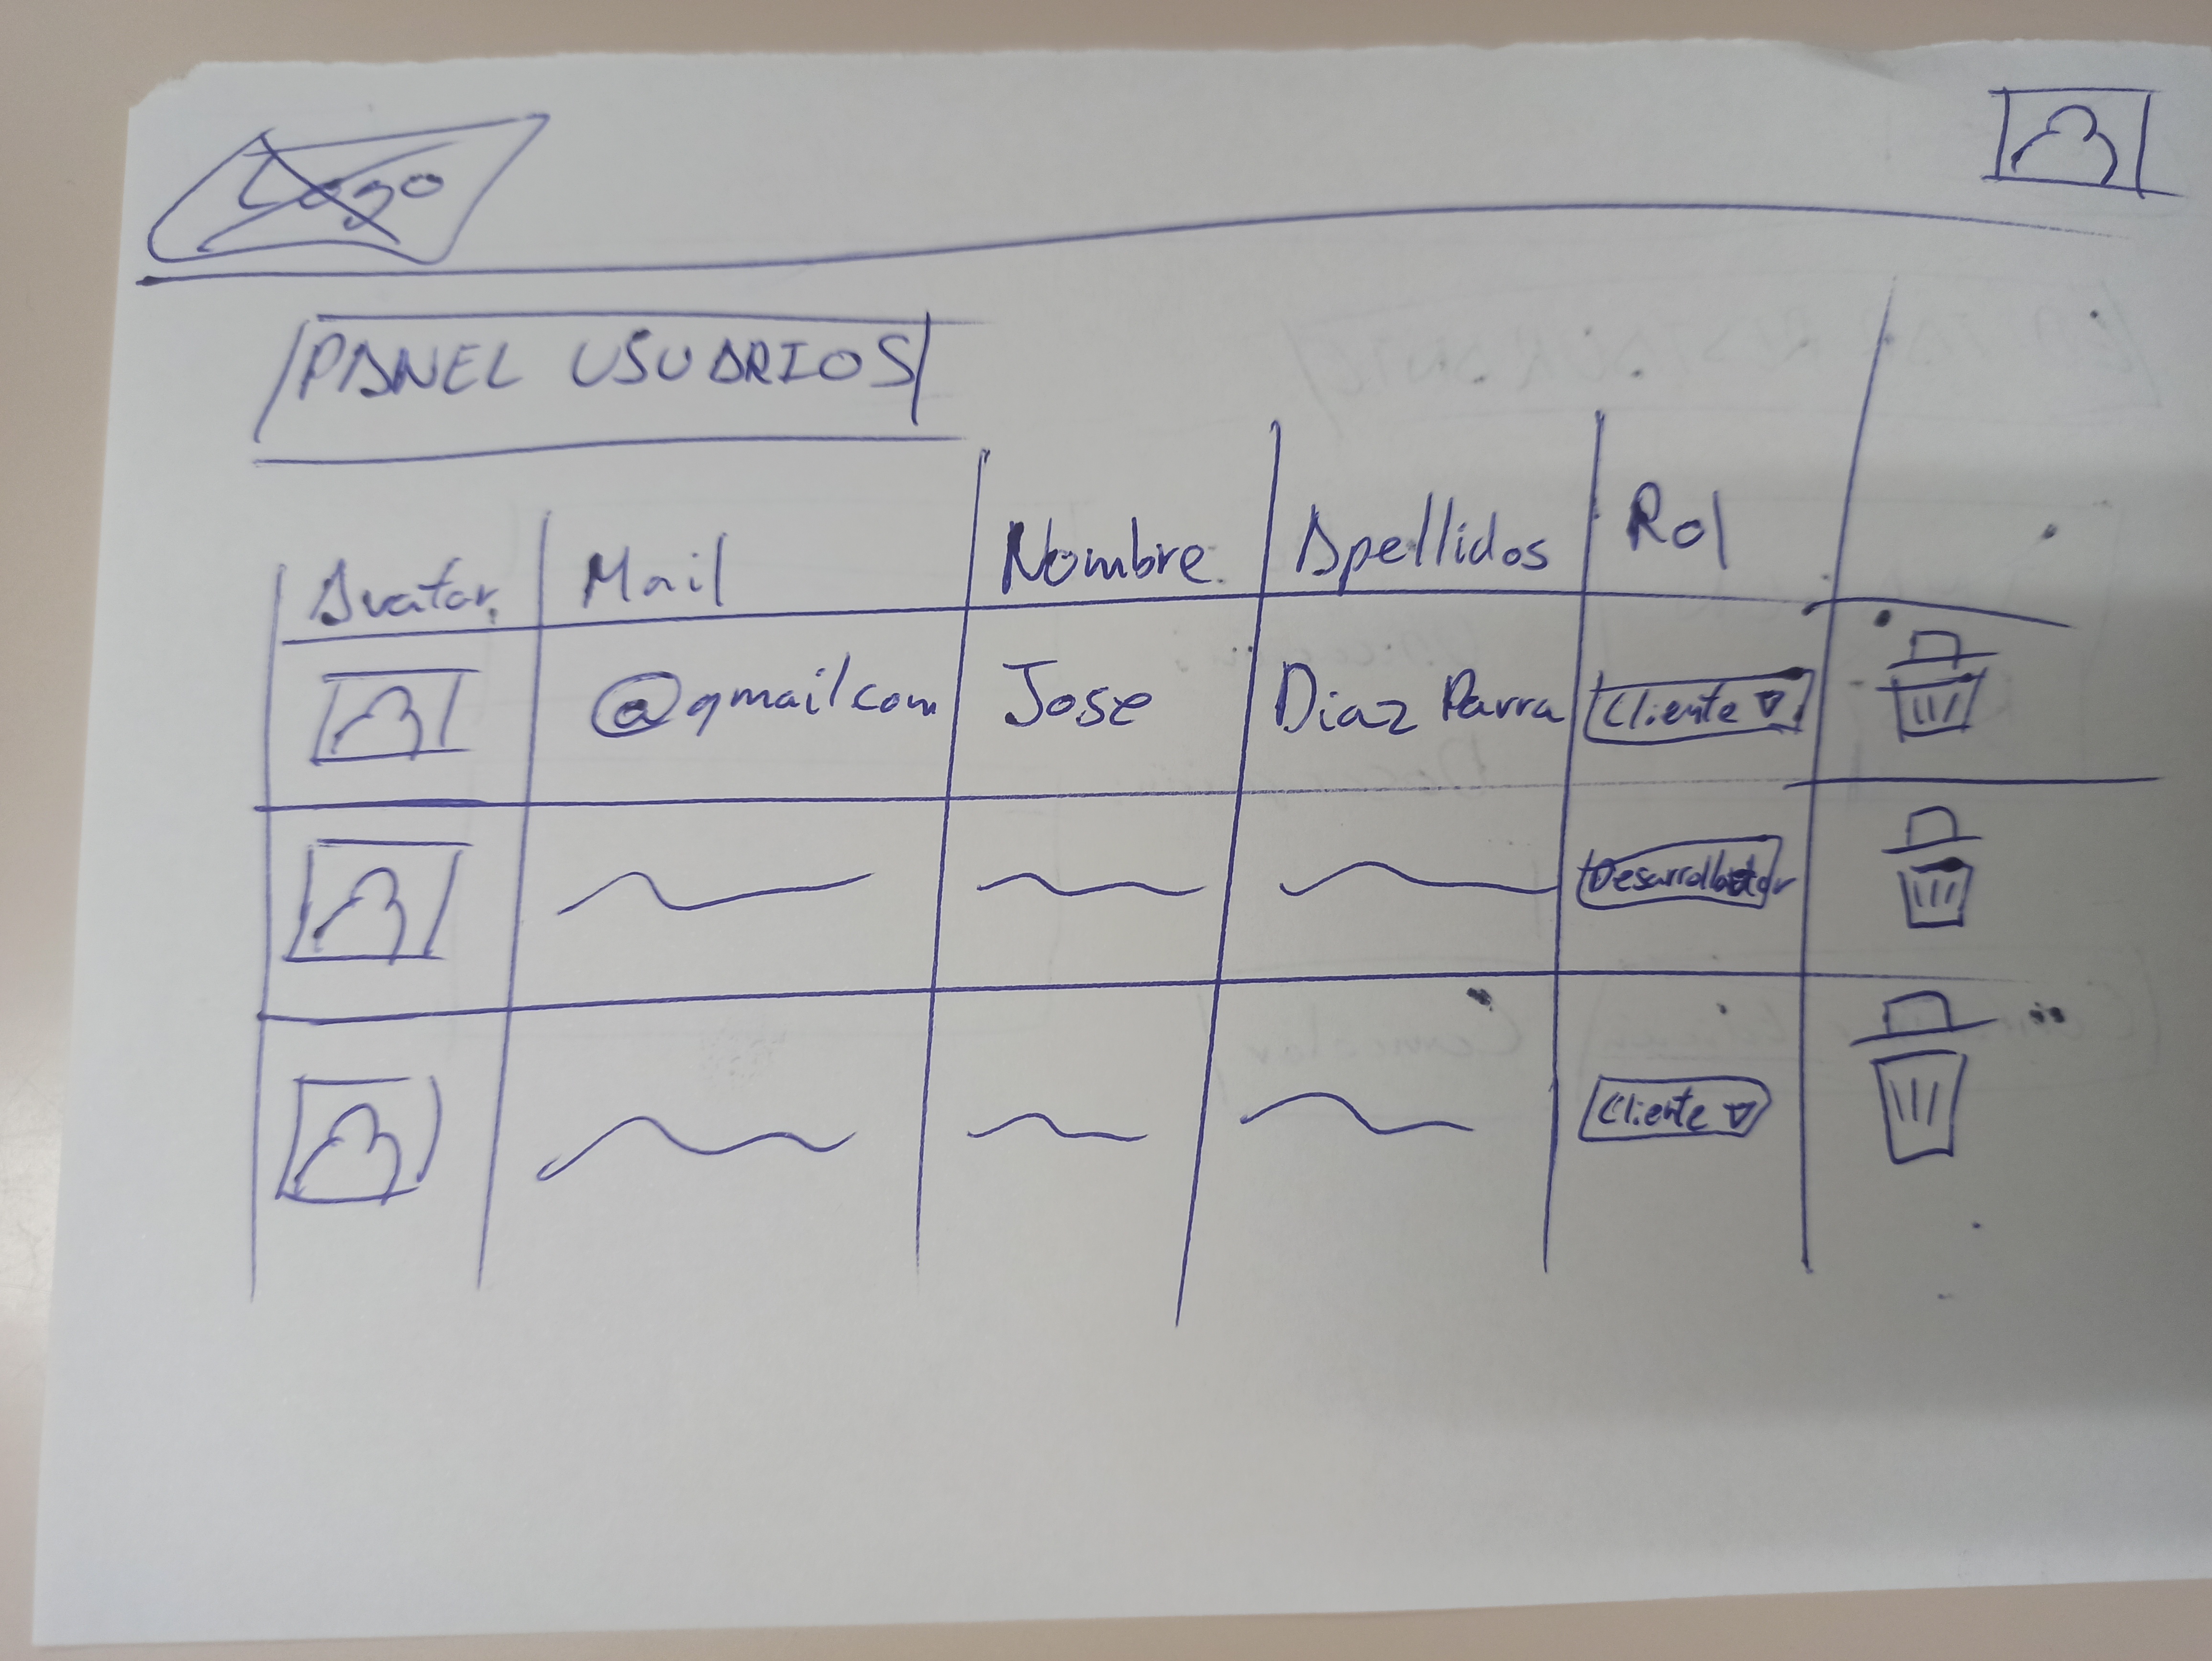 Logo
PANEL USUARIOS
Avatar Mail Nombre Apellidos Rol
@gmailcom Jose Diaz Parra Cliente
Desarrollador
Cliente